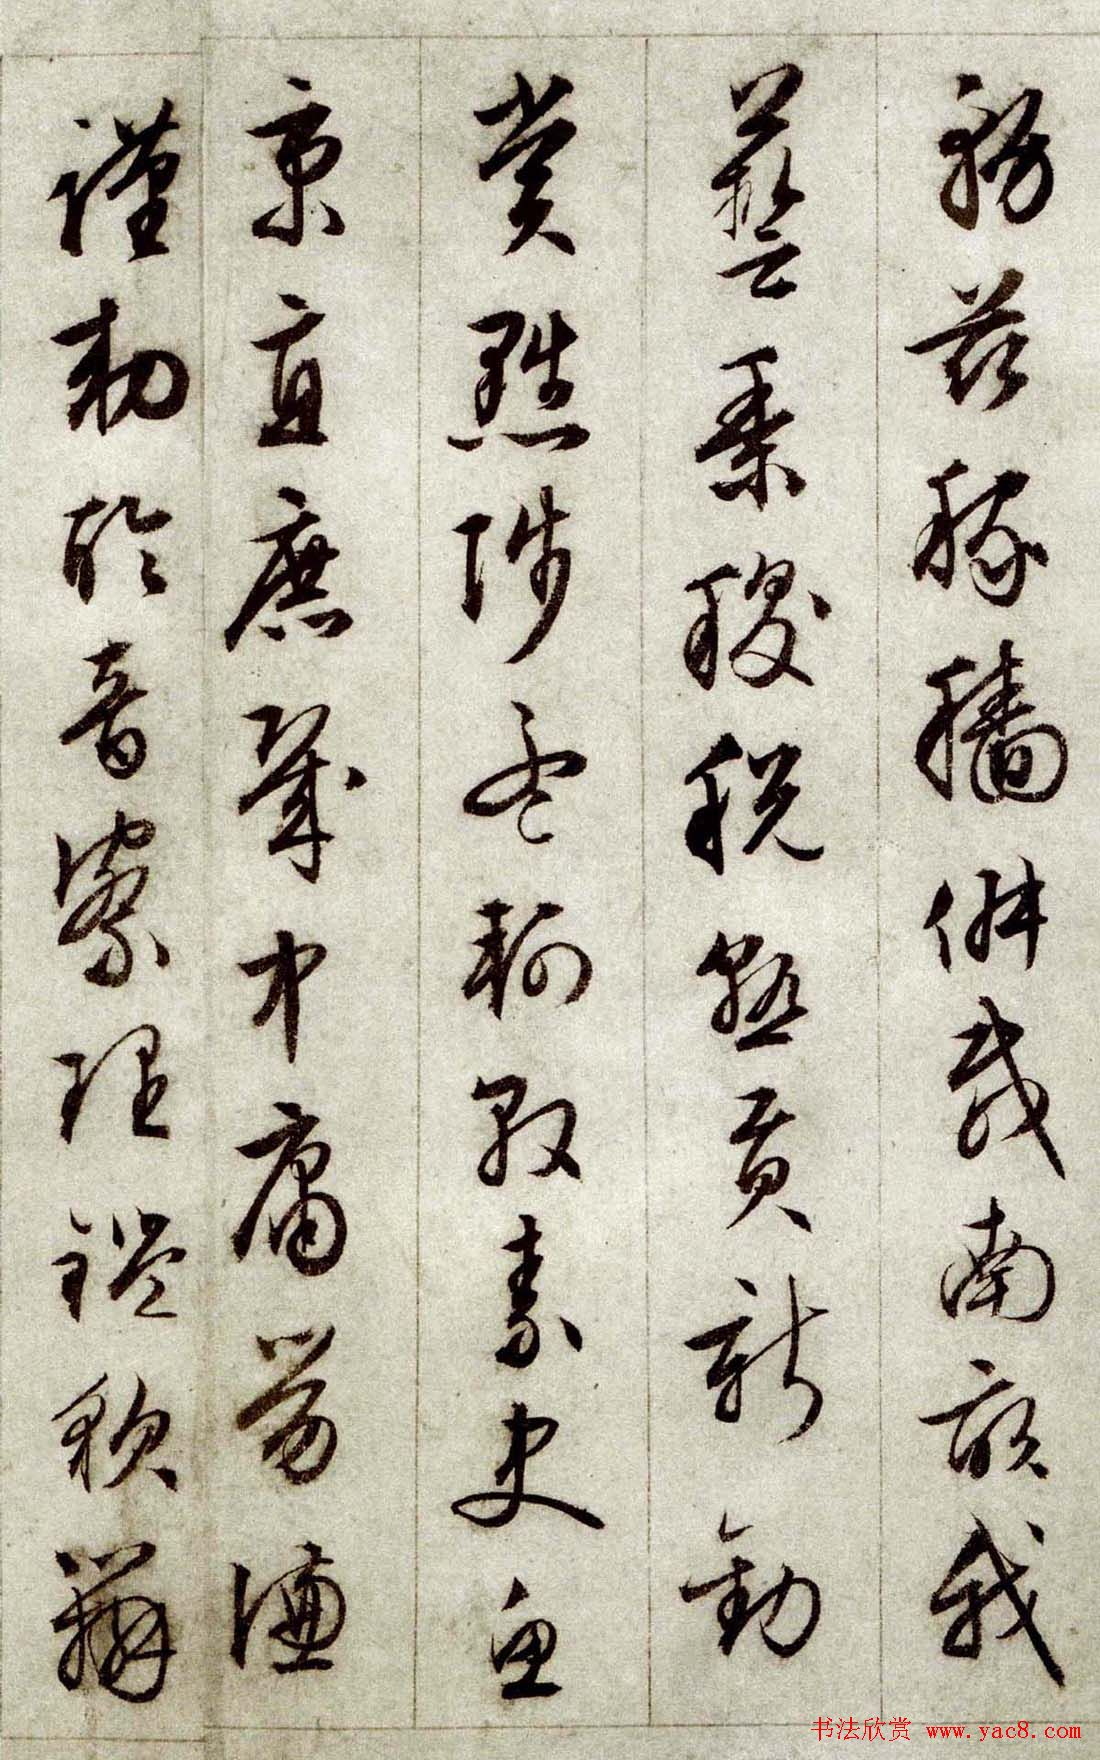 務茲稼穡俶載南畝我
藝黍稷稅熟貢新勸
賞黜陟孟軻敦素史魚
秉直庶幾中庸勞謙
謹敕聆音察理鑑貌辨
书法欣赏 www.yac8.com